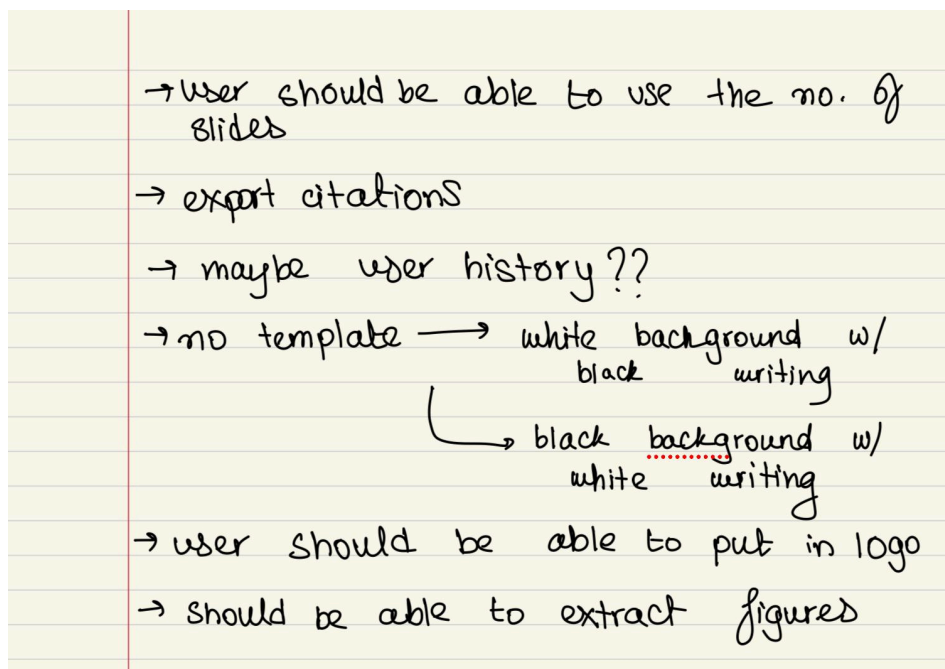 → user should be able to use the no. of
slides
→ export citations
→ maybe user history??
→ no template → white background w/
black writing
→ black background w/
white writing
→ user should be able to put in logo
→ should be able to extract figures